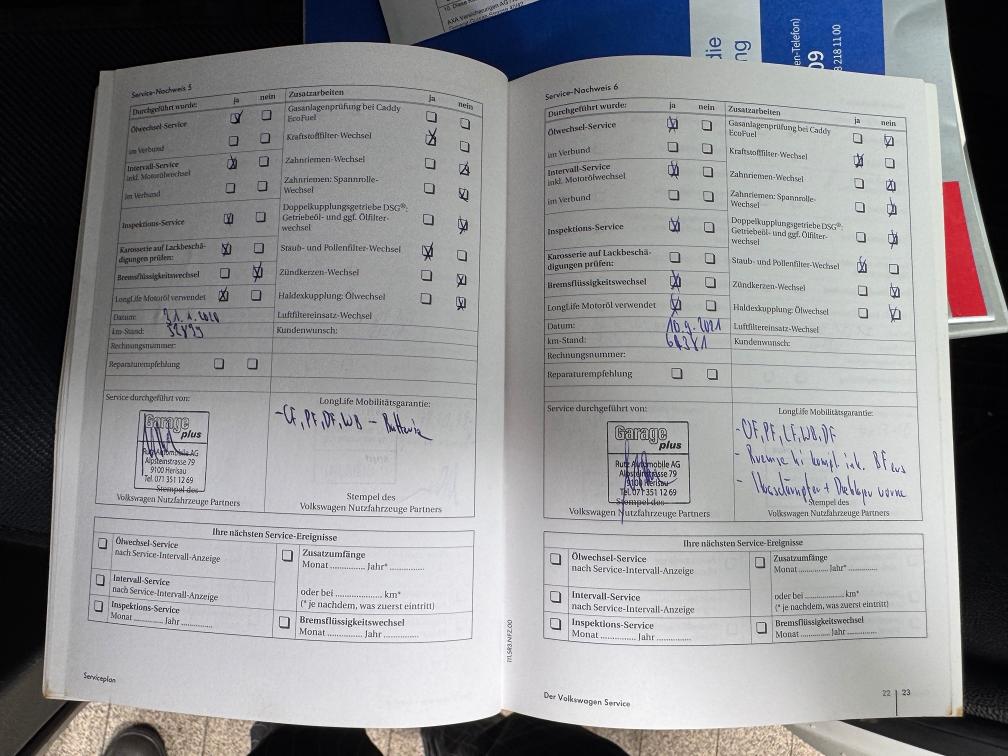 10. Diese K
AXA Versicherungen AG
die
ng
en-Telefon)
09
3 218 11 00
Service-Nachweis 5
Durchgeführt wurde: ja nein Zusatzarbeiten ja nein
Ölwechsel-Service
Gasanlagenprüfung bei Caddy
EcoFuel
im Verbund
Kraftstofffilter-Wechsel
Intervall-Service
inkl. Motorölwechsel
Zahnriemen-Wechsel
im Verbund
Zahnriemen: Spannrolle-
Wechsel
Inspektions-Service
Doppelkupplungsgetriebe DSG®:
Getriebeöl- und ggf. Ölfilter-
wechsel
Karosserie auf Lackbeschä-
digungen prüfen:
Staub- und Pollenfilter-Wechsel
Bremsflüssigkeitswechsel
Zündkerzen-Wechsel
LongLife Motoröl verwendet
Haldexkupplung: Ölwechsel
Datum: 21.1.2020
Luftfiltereinsatz-Wechsel
km-Stand:
Kundenwunsch:
Rechnungsnummer:
Reparaturempfehlung
Service durchgeführt von:
LongLife Mobilitätsgarantie:
Garage
plus
Rutz Automobile AG
Alpsteinstrasse 79
9100 Herisau
Tel. 071 351 12 69
Stempel des
Volkswagen Nutzfahrzeuge Partners
PF, DF, WB - Batterie
Stempel des
Volkswagen Nutzfahrzeuge Partners
Ihre nächsten Service-Ereignisse
Ölwechsel-Service
nach Service-Intervall-Anzeige
Zusatzumfänge
Monat ............ Jahr* ............
Intervall-Service
nach Service-Intervall-Anzeige
oder bei ......................... km*
(* je nachdem, was zuerst eintritt)
Inspektions-Service
Monat ............ Jahr ............
Bremsflüssigkeitswechsel
Monat ............ Jahr ............
Serviceplan
111.5R3.NFZ.00
Service-Nachweis 6
Durchgeführt wurde: ja nein Zusatzarbeiten ja nein
Ölwechsel-Service
Gasanlagenprüfung bei Caddy
EcoFuel
im Verbund
Kraftstofffilter-Wechsel
Intervall-Service
inkl. Motorölwechsel
Zahnriemen-Wechsel
im Verbund
Zahnriemen: Spannrolle-
Wechsel
Inspektions-Service
Doppelkupplungsgetriebe DSG®:
Getriebeöl- und ggf. Ölfilter-
wechsel
Karosserie auf Lackbeschä-
digungen prüfen:
Staub- und Pollenfilter-Wechsel
Bremsflüssigkeitswechsel
Zündkerzen-Wechsel
LongLife Motoröl verwendet
Haldexkupplung: Ölwechsel
Datum: 10.9.2021
Luftfiltereinsatz-Wechsel
km-Stand:
Kundenwunsch:
Rechnungsnummer:
Reparaturempfehlung
Service durchgeführt von:
LongLife Mobilitätsgarantie:
Garage
plus
Rutz Automobile AG
Alpsteinstrasse 79
9100 Herisau
Tel. 071 351 12 69
Stempel des
Volkswagen Nutzfahrzeuge Partners
- OF, PF, LF, WB, DF
- hi kompl. ink. BF
- + vorne
Stempel des
Volkswagen Nutzfahrzeuge Partners
Ihre nächsten Service-Ereignisse
Ölwechsel-Service
nach Service-Intervall-Anzeige
Zusatzumfänge
Monat ............ Jahr* ............
Intervall-Service
nach Service-Intervall-Anzeige
oder bei ......................... km*
(* je nachdem, was zuerst eintritt)
Inspektions-Service
Monat ............ Jahr ............
Bremsflüssigkeitswechsel
Monat ............ Jahr ............
Der Volkswagen Service
22 | 23